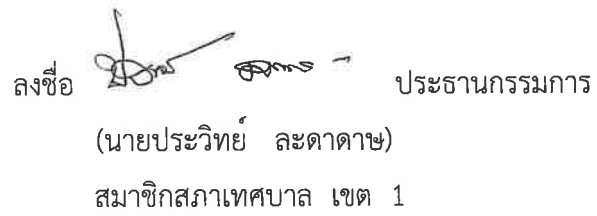 ลงชื่อ ประธานกรรมการ
(นายประวิทย์ ละดาดาษ)
สมาชิกสภาเทศบาล เขต 1